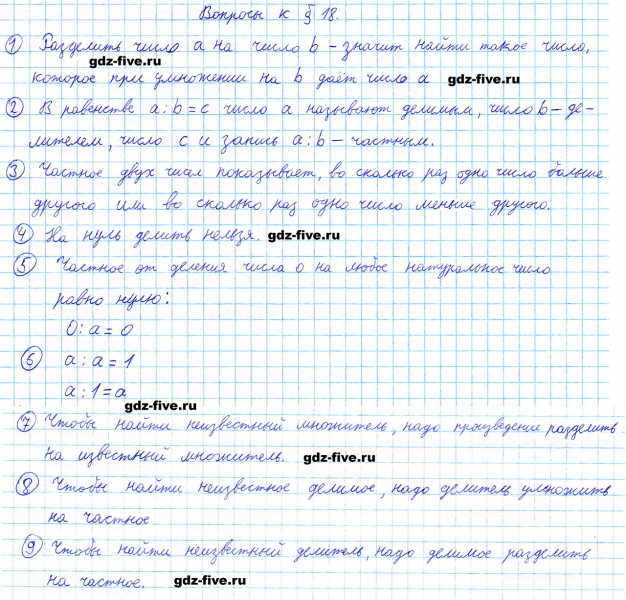 Вопросы к § 18.
1 Разделить число a на число b – значит найти такое число,
gdz-five.ru
которое при умножении на b даёт число a gdz-five.ru
2 В равенстве a : b = c число a называют делимым, число b – де-
лителем, число c и запись a : b – частным.
3 Частное двух чисел показывает, во сколько раз одно число больше
другого или во сколько раз одно число меньше другого.
4 На нуль делить нельзя. gdz-five.ru
5 Частное от деления числа 0 на любое натуральное число
равно нулю:
0 : a = 0
6 a : a = 1
a : 1 = a
gdz-five.ru
7 Чтобы найти неизвестный множитель, надо произведение разделить
на известный множитель. gdz-five.ru
8 Чтобы найти неизвестное делимое, надо делитель умножить
на частное
9 Чтобы найти неизвестный делитель, надо делимое разделить
на частное. gdz-five.ru